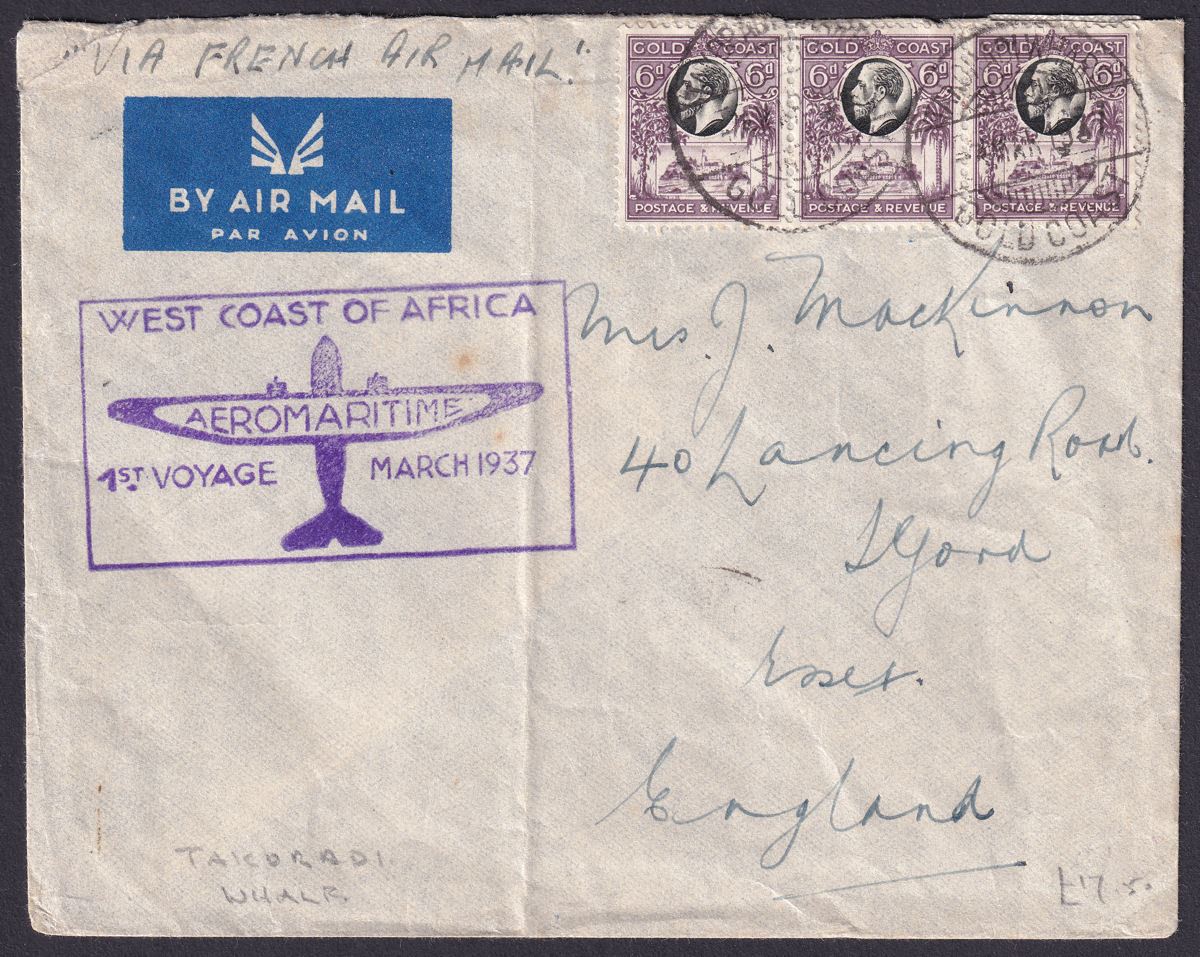 "VIA FRENCH AIR MAIL".
BY AIR MAIL
PAR AVION
GOLD COAST
6d 6d
POSTAGE & REVENUE
GOLD COAST
6d 6d
POSTAGE & REVENUE
GOLD COAST
6d 6d
POSTAGE & REVENUE
GOLD COAST
WEST COAST OF AFRICA
AEROMARITIME
1ST VOYAGE MARCH 1937
Mrs. J. Mackinnon
40 Lancing Road.
Ilford
Essex.
England
TAKORADI
WHARF
£17.50